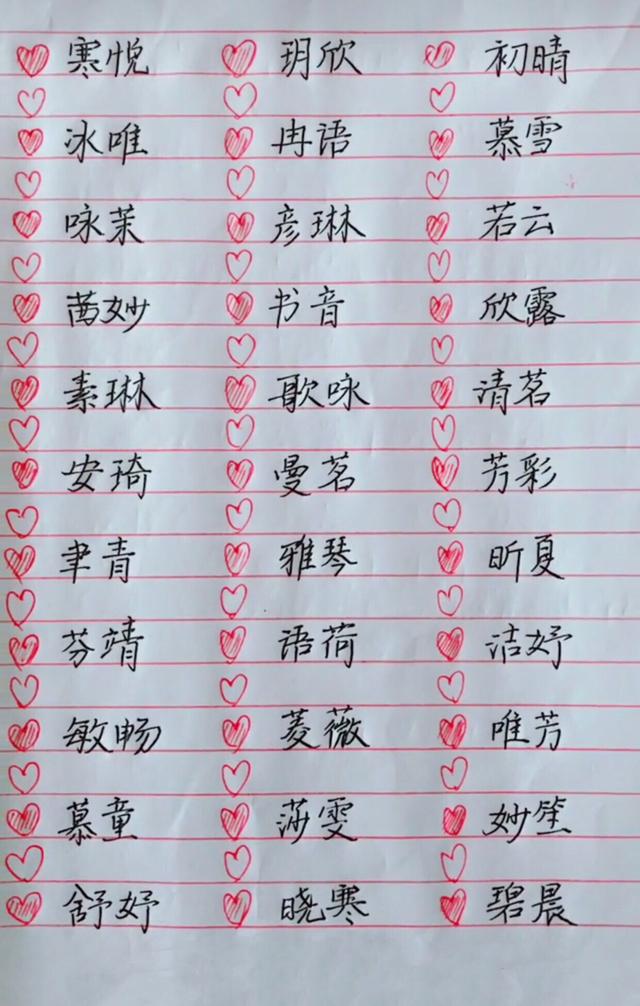 寒悦 玥欣 初晴
冰唯 冉语 慕雪
咏茉 彦琳 若云
茜妙 书音 欣露
素琳 歌咏 清茗
安琦 曼茗 芳彩
聿青 雅琴 昕夏
芬靖 语荷 洁妤
敏畅 菱薇 唯芳
慕童 莎雯 妙笙
舒妤 晓寒 碧晨